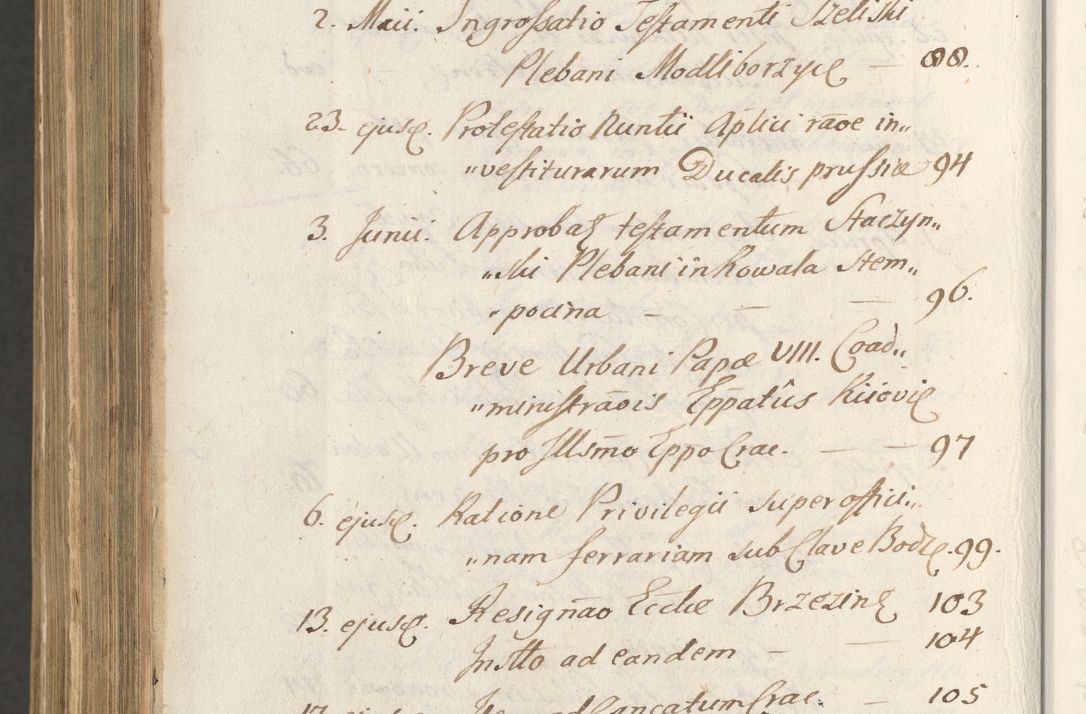 2. Maii. Ingrossatio Testamenti Szeliski
Plebani Modliborzyce — 88.
23. ejusd. Protestatio Nuntii Aplici raōe in„
„vestiturarum Ducatis prussiæ 94
3. Junii. Approbat testamentum Staczyn„
„ski Plebani in Kowala Stem„
„pocina — — — 96.
Breve Urbani Papæ VIII. Coad„
„ministrāōis Epp̄atûs Kiiovie
pro Illsm̄o Eppo Crac. — — 97
6. ejusd. Ratione Privilegii super offici„
„nam ferrariam sub Clave Bodz. 99.
13. ejusd. Resignāo Eccłæ Brzezin 103
Instto ad eandem — — 104
17. ejusd. ad Cancatum Crac. 105